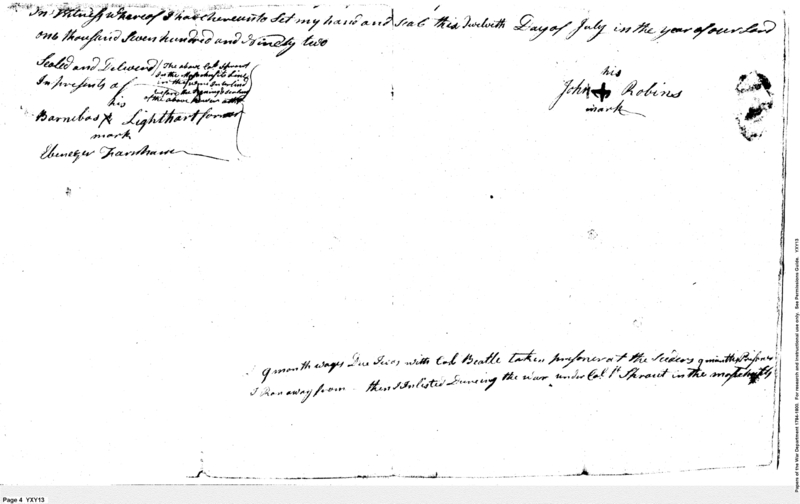 In Witness Whareof I have hereunto Set my hand and Seal this Twelvth Day of July in the year of our Lord
one thousand Seven hundred and Ninety two
Sealed and Delivered
In presents of
The above Col. Sprout
In the
in the
before the
the above
his
Barnebas X Lighthart
mark
Ebenezer
his
John + Robins
mark
9 month wages Due I was with Col Beatle taken prisoner at the Seders 9 months Prisoner
I Ran away from then I Inlested Dureing the war under Col. Sprout in the
Page 4 YXY13
Papers of the War Department 1784-1800. For research and instructional use only. See Permissions Guide. YXY13